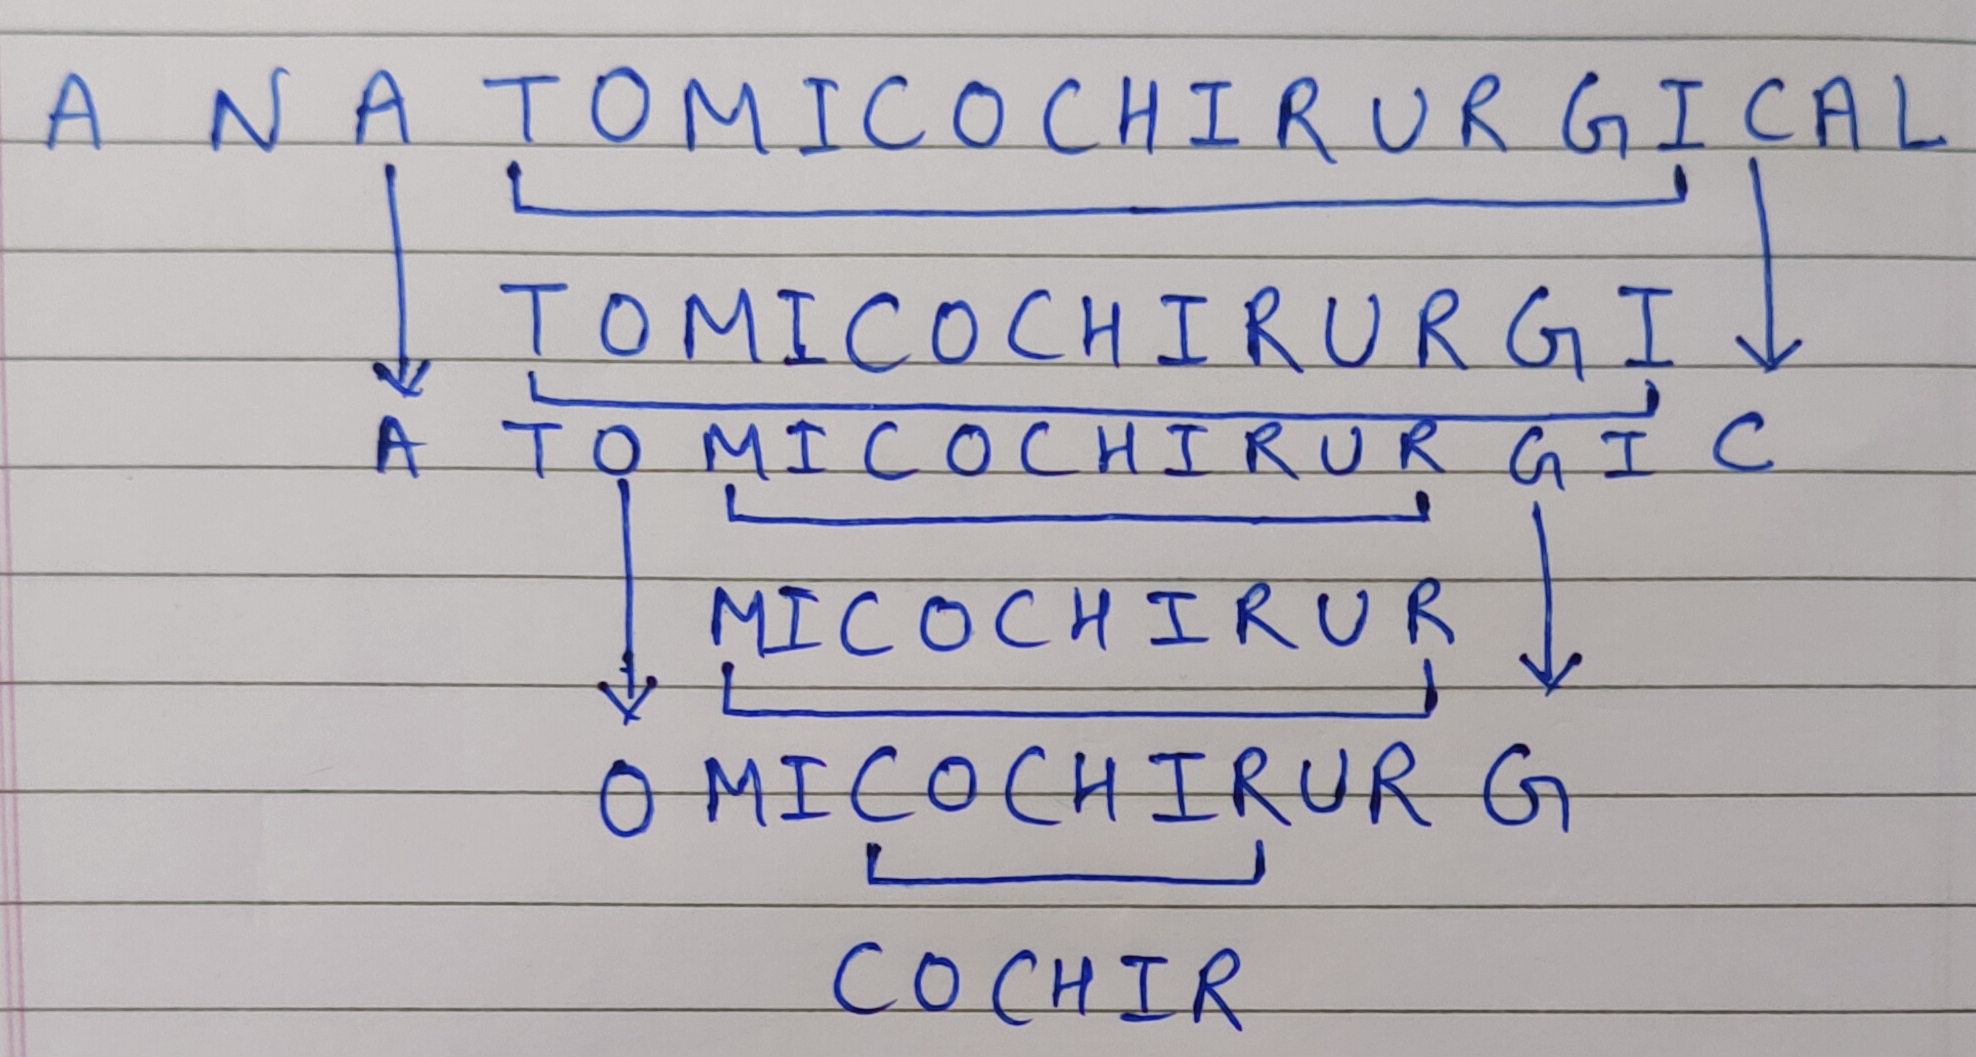 A N A TOMICOCHIRURGICAL
TOMICOCHIRURGI
A TO MICOCHIRUR GIC
MICOCHIRUR
O MICOCHIRUR G
COCHIR